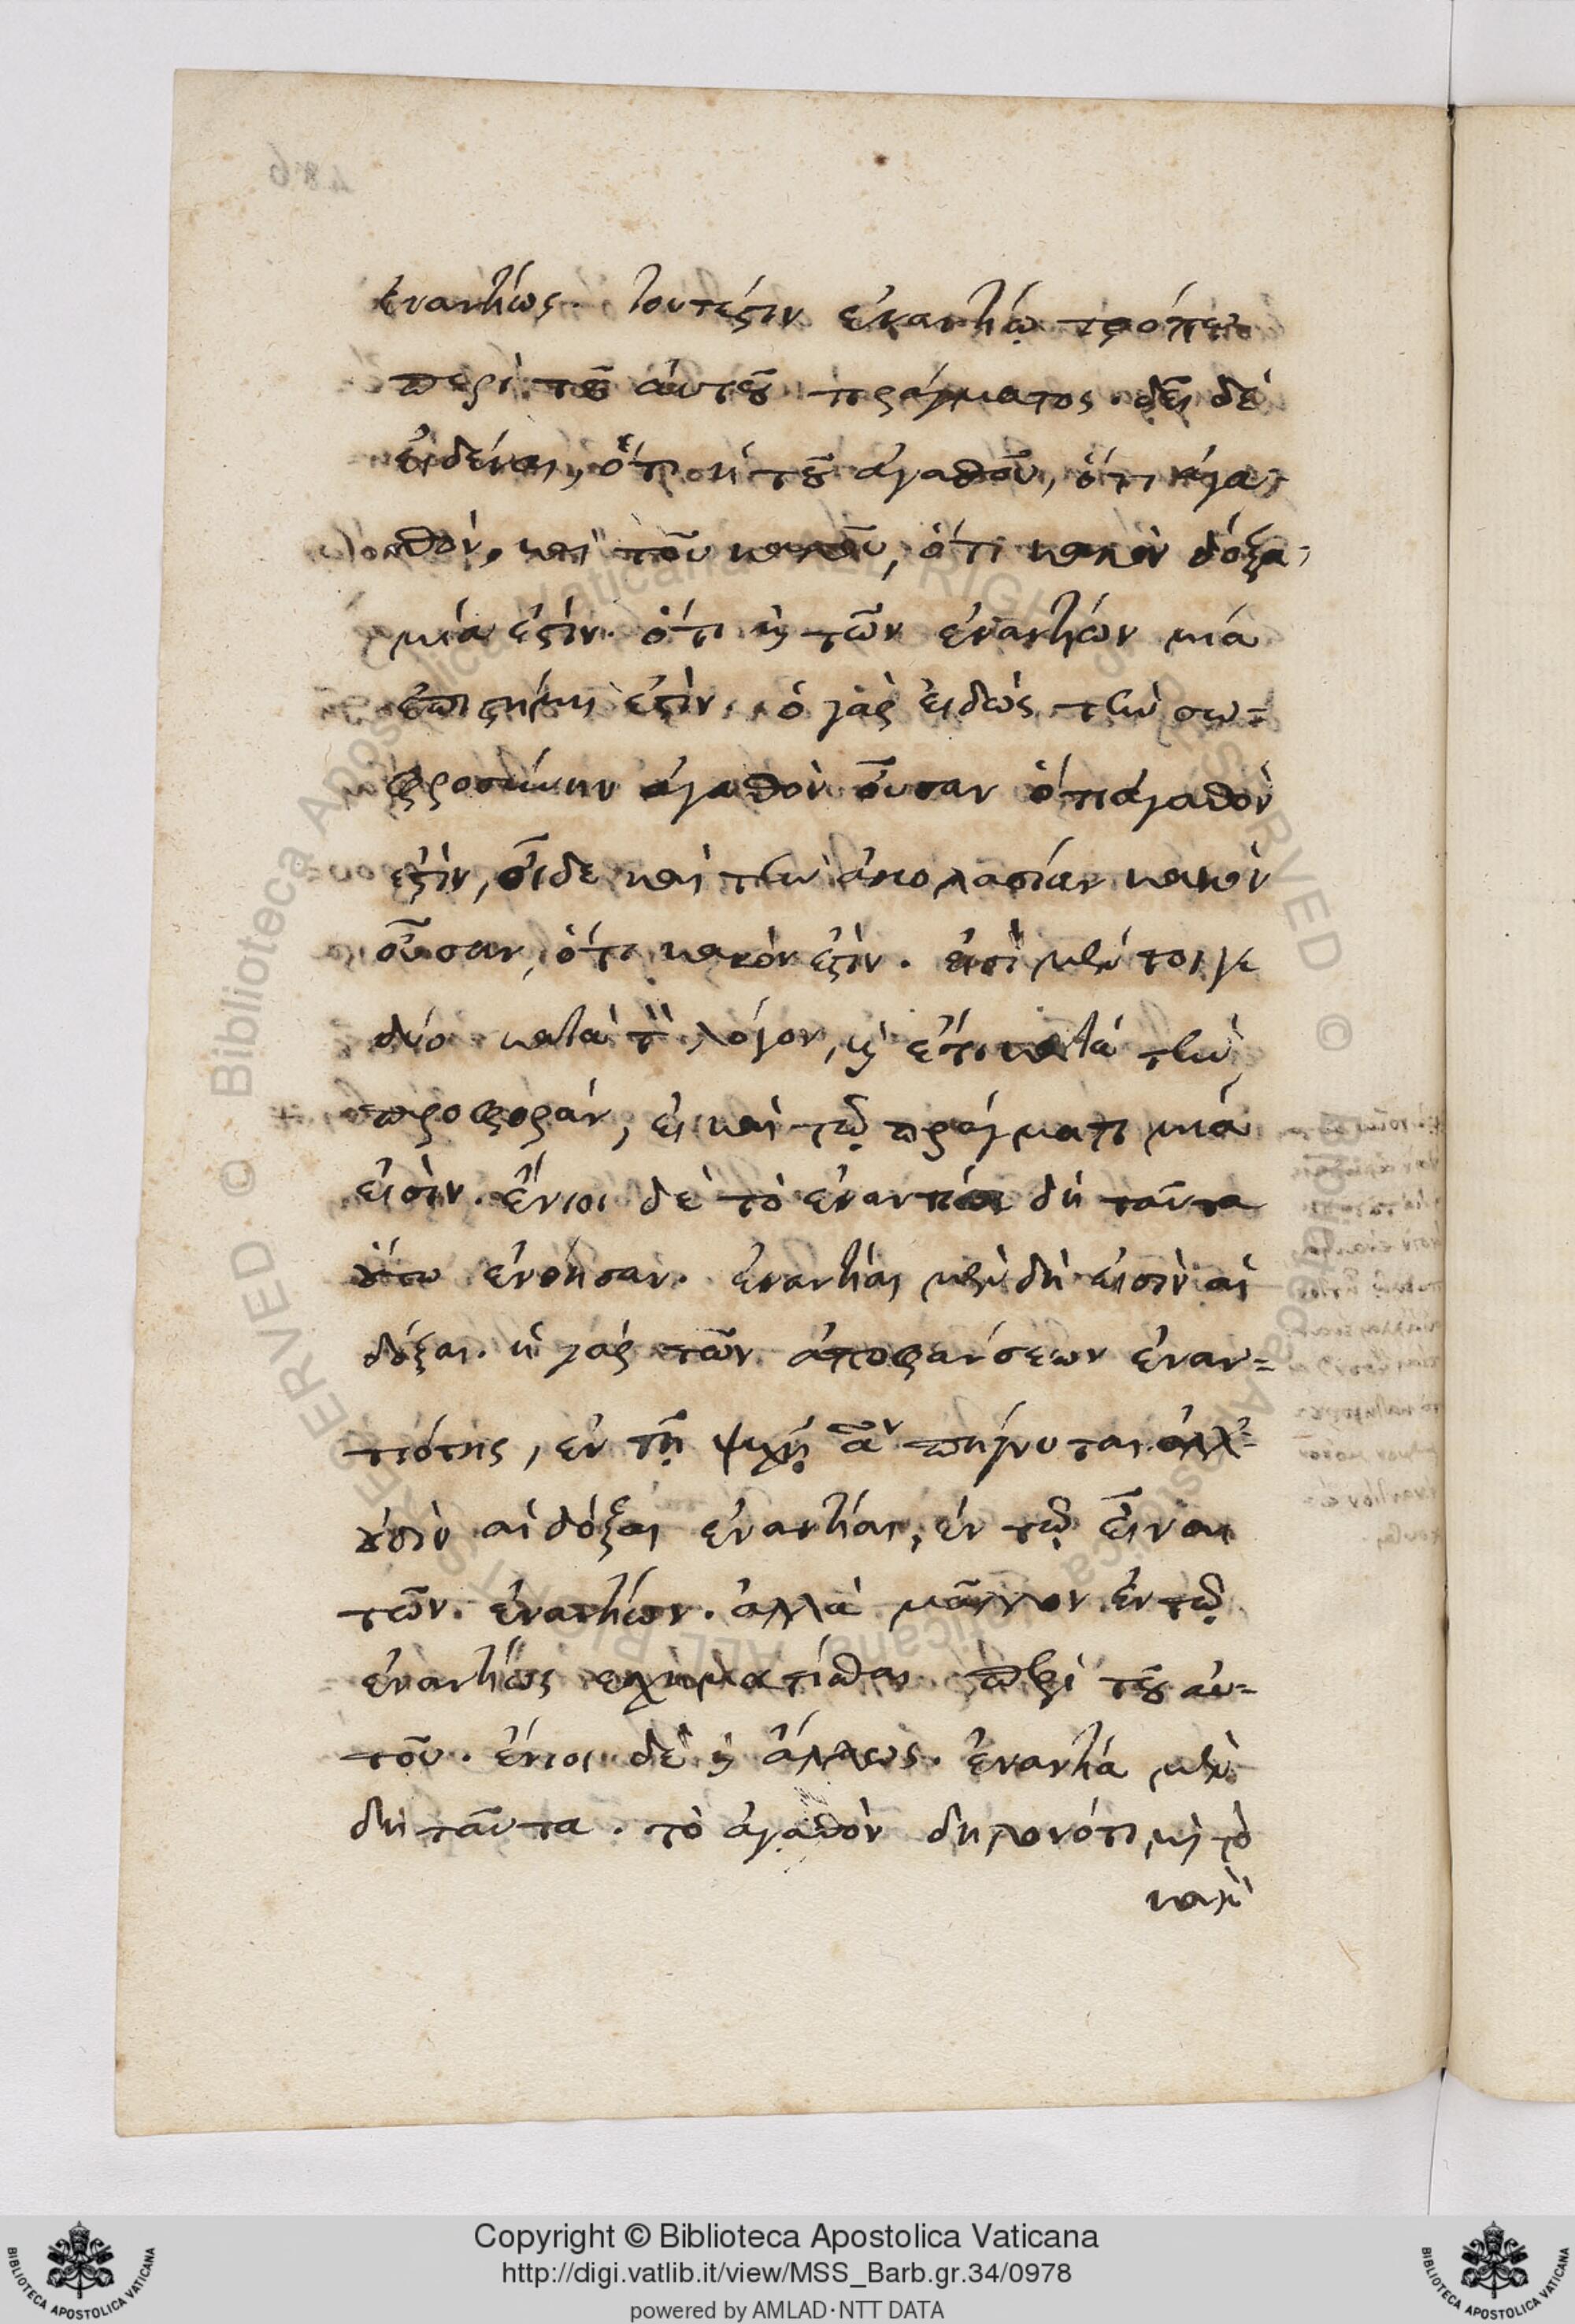 ἐναντίως. τουτέστιν ἐναντίῳ τρόπῳ
περὶ τοῦ αὐτοῦ πράγματος. δεῖ δὲ
εἰδέναι, ὅτι ἡ τοῦ ἀγαθοῦ, ὅτι ἀγα-
θὸν, καὶ τοῦ κακοῦ, ὅτι κακὸν δόξα,
μία ἐστίν. ὅτι καὶ τῶν ἐναντίων μία
ἐπιστήμη ἐστὶν. ὁ γὰρ εἰδὼς τὴν σω-
φροσύνην ἀγαθὸν οὖσαν ὅτι ἀγαθὸν
ἐστὶν, οἶδε καὶ τὴν ἀκολασίαν κακὸν
οὖσαν, ὅτι κακόν ἐστὶν. εἰσὶ μέν τοι γε
δύο κατὰ τὸν λόγον, καὶ ἔτι κατὰ τὴν
προφορὰν, εἰ καὶ τῷ πράγματι μιά
εἰσὶν. ἔνιοι δὲ τὸ ἐναντίαι δὴ ταῦτα
οὕτω ἐνόησαν. ἐναντίαι μὲν δὴ εἰσὶν αἱ
δόξαι. ἡ γὰρ τῶν ἀποφάνσεων ἐναν-
τιότης, ἐν τῇ ψυχῇ πήγνυται. ἀλλ'
οὐσὶν αἱ δόξαι ἐναντίαι, ἐν τῷ εἶναι
τῶν ἐναντίων. ἀλλὰ μᾶλλον ἐν τῷ
ἐναντίως ἐσχηματίσθαι περὶ τοῦ αὐ-
τοῦ. ἔνιοι δὲ καὶ ἄλλως. ἐναντία μὲν
δὴ ταῦτα. τὸ ἀγαθὸν δηλονότι καὶ τὸ
κακὸν
Copyright © Biblioteca Apostolica Vaticana
http://digi.vatlib.it/view/MSS_Barb.gr.34/0978
powered by AMLAD·NTT DATA